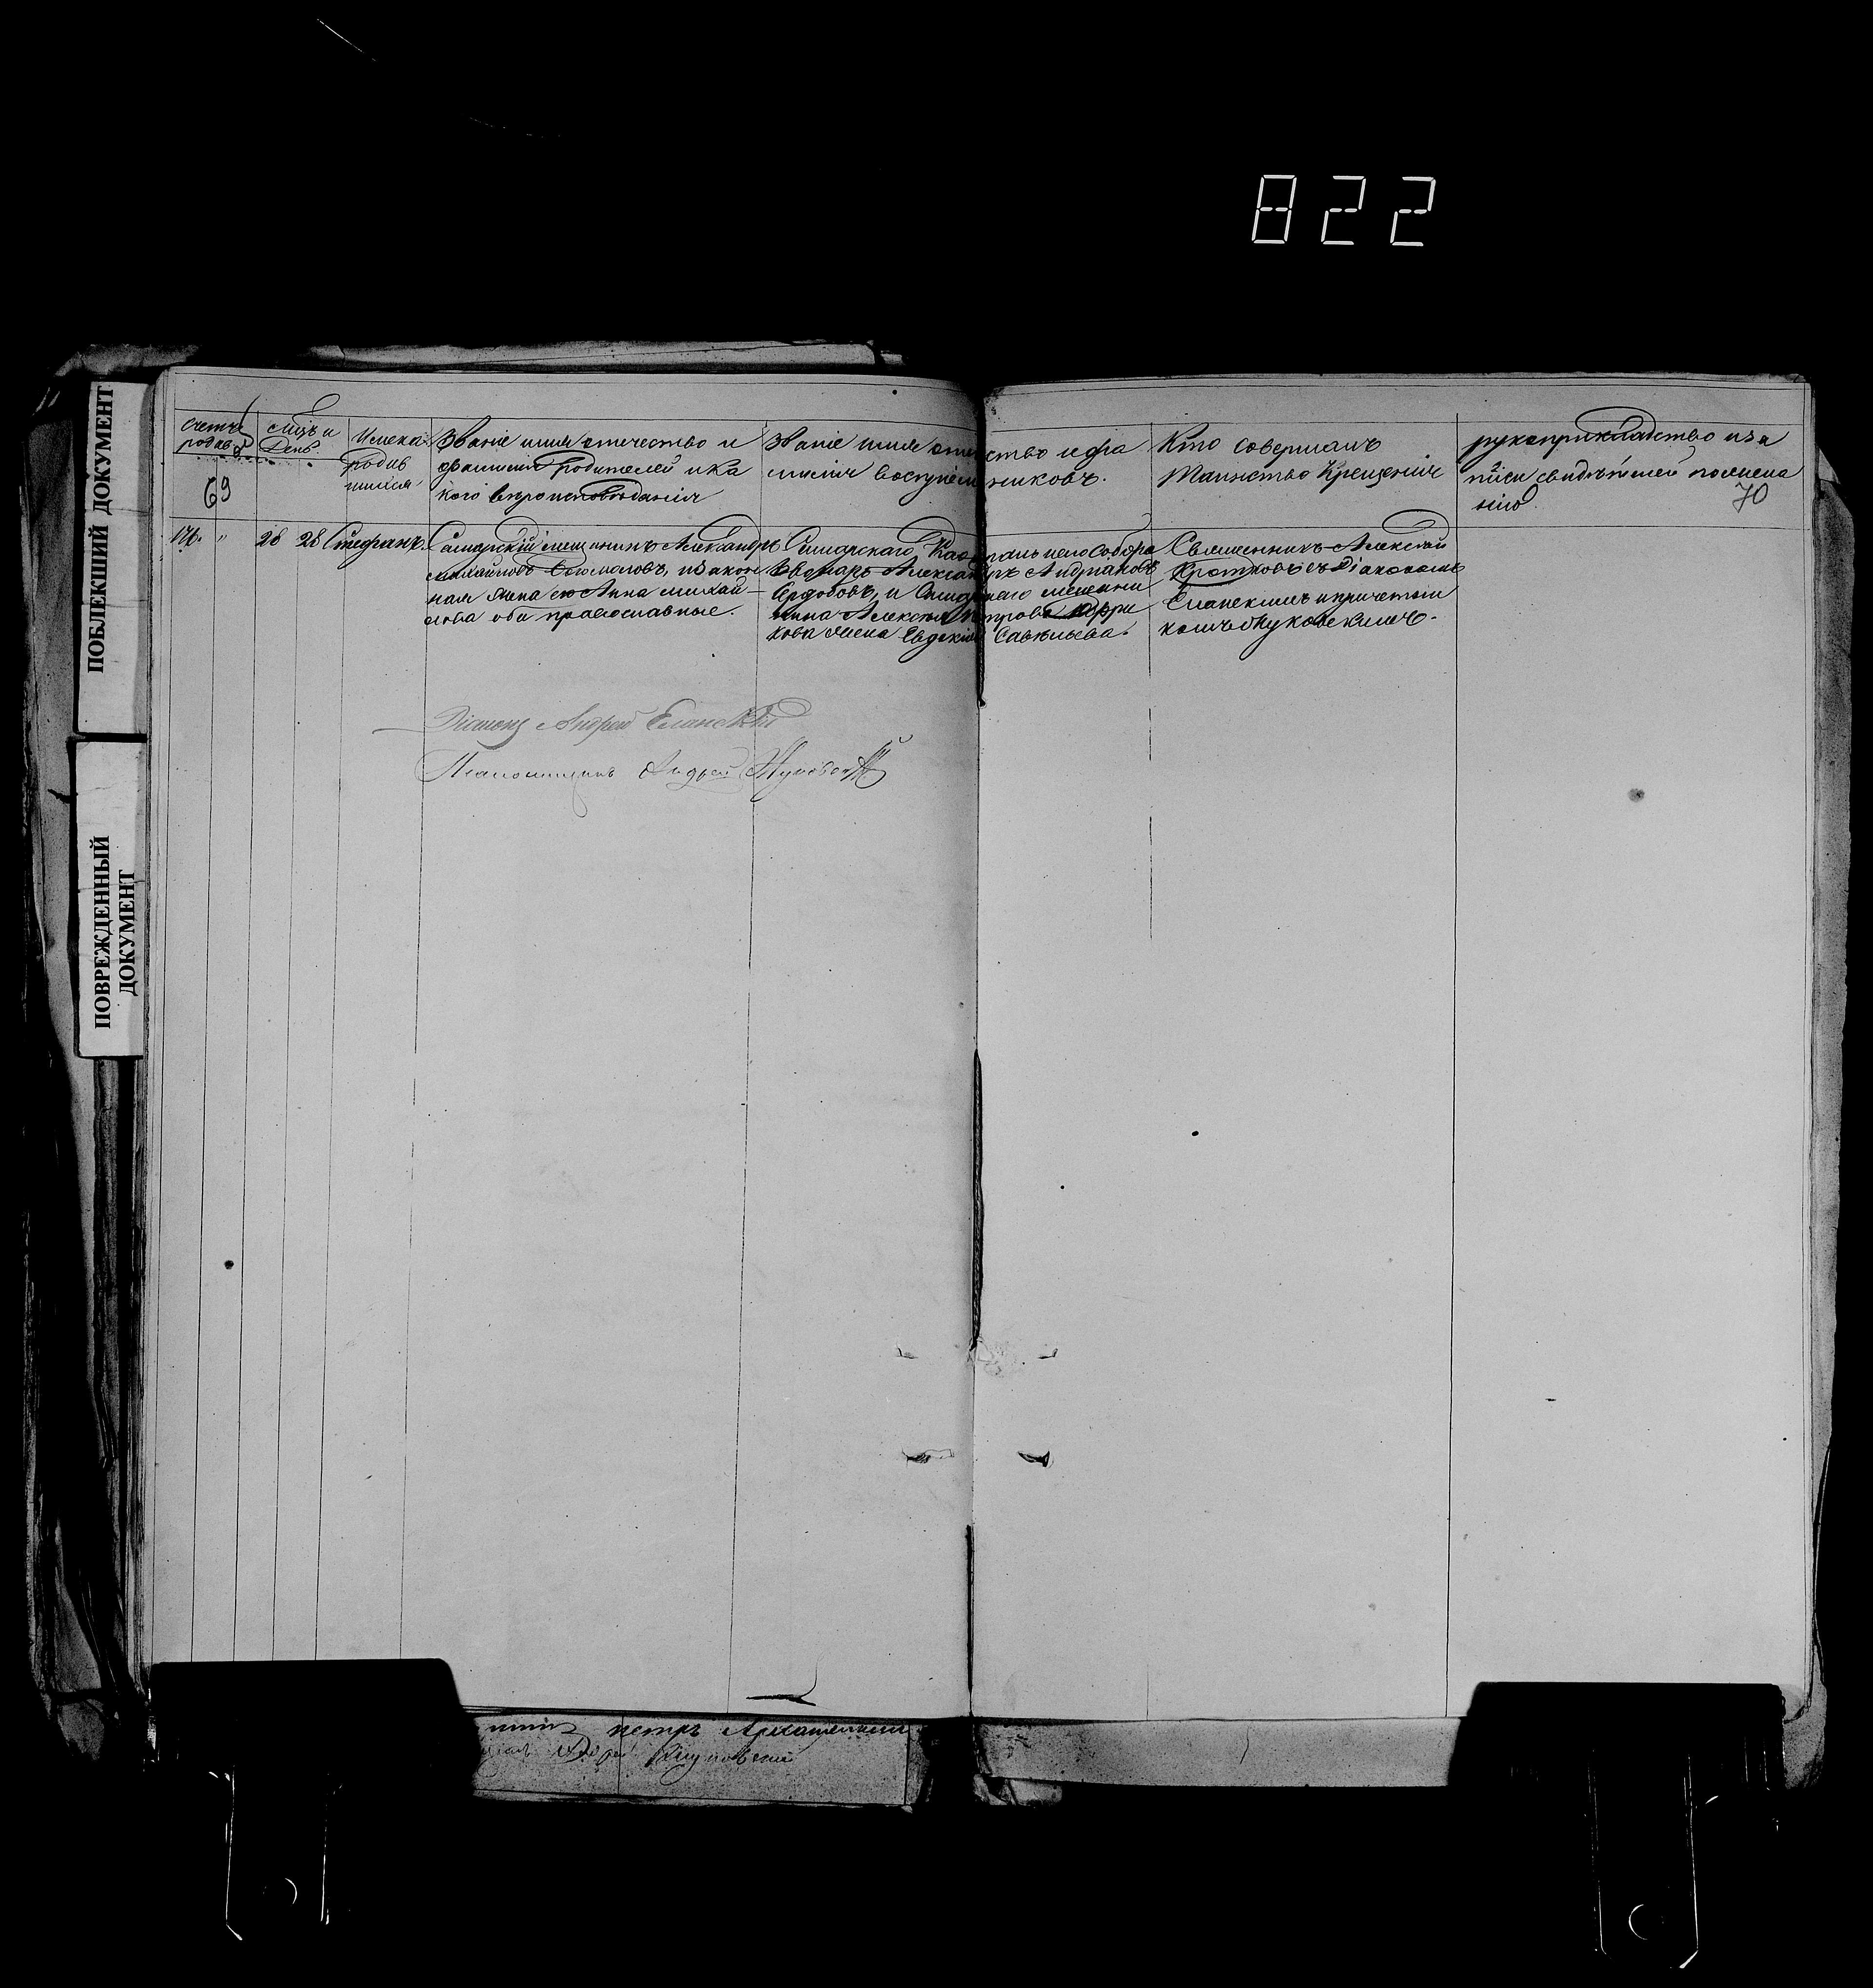 822
ПОБЛЕКШИЙ ДОКУМЕНТ
ПОВРЕЖДЕННЫЙ
ДОКУМЕНТ
Счетъ
родив
69
Мцъ и
День.
Имена
родив
шихся
Званіе имя отечество и
фамилія родителей и ка
кого вѣроисповѣданія
Званіе имя отечество и фа
милія воспріемниковъ.
Кто совершалъ
таинство Крещенія
рукоприкладство иза
писи свидѣтелей по желна
нію
70
176. " 28 28 Стефанъ.
Самарскій мещанинъ Александръ
Михайловъ, и закон
ная жена его Анна Михай-
лова оба православные.
Самарскаго Собора
Александръ Андріановъ
и мещани
нина Алексѣя Петрова
кова жена Евдокія Савельева.
Священникъ Алексѣй
Кротковъ съ Діакономъ
Еланскимъ и причетни
комъ Жуковскимъ.
Діаконъ Андрей Еланскій
Андрей Жуковскій
петръ Архангельскій